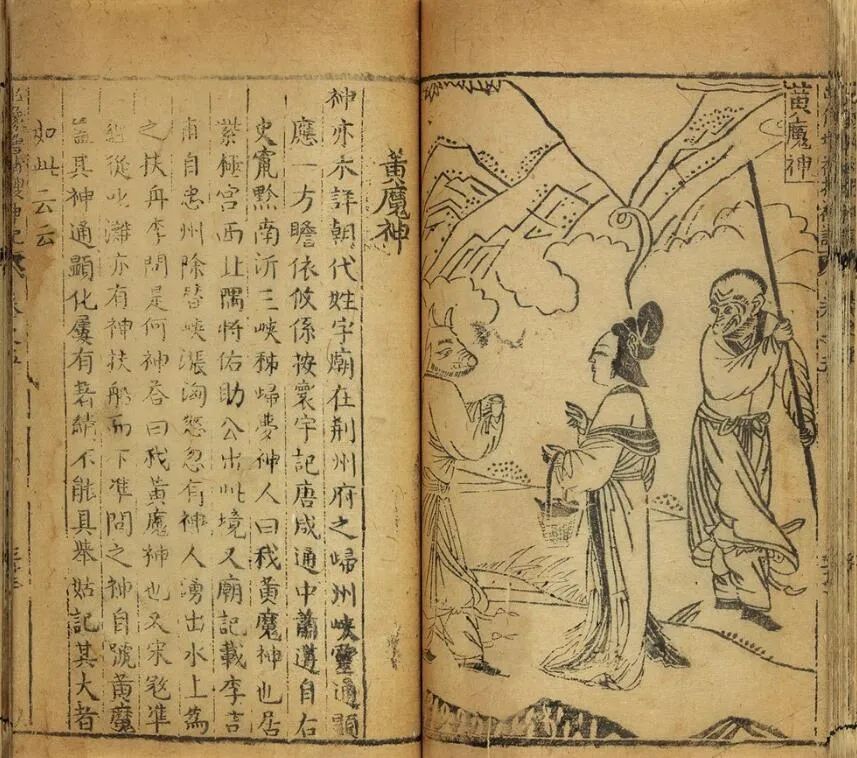 黃魔神
黃魔神
神亦不詳朝代姓字廟在荆州府之歸州峽靈通顯
應一方瞻依攸係按寰宇記唐咸通中蕭遘自右
史竄黔南泝三峽秭歸夢神人曰我黃魔神也居
紫極宮西北隅將佑助公出此境又廟記載李吉
甫自忠州除替峽漲洶怒忽有神人湧出水上爲
之扶舟李問是何神荅曰我黃魔神也又宋寇準
從叱灘亦有神扶船而下準問之神自號黃魔
其神通顯化屢有著績不能具舉姑記其大者
如此云云